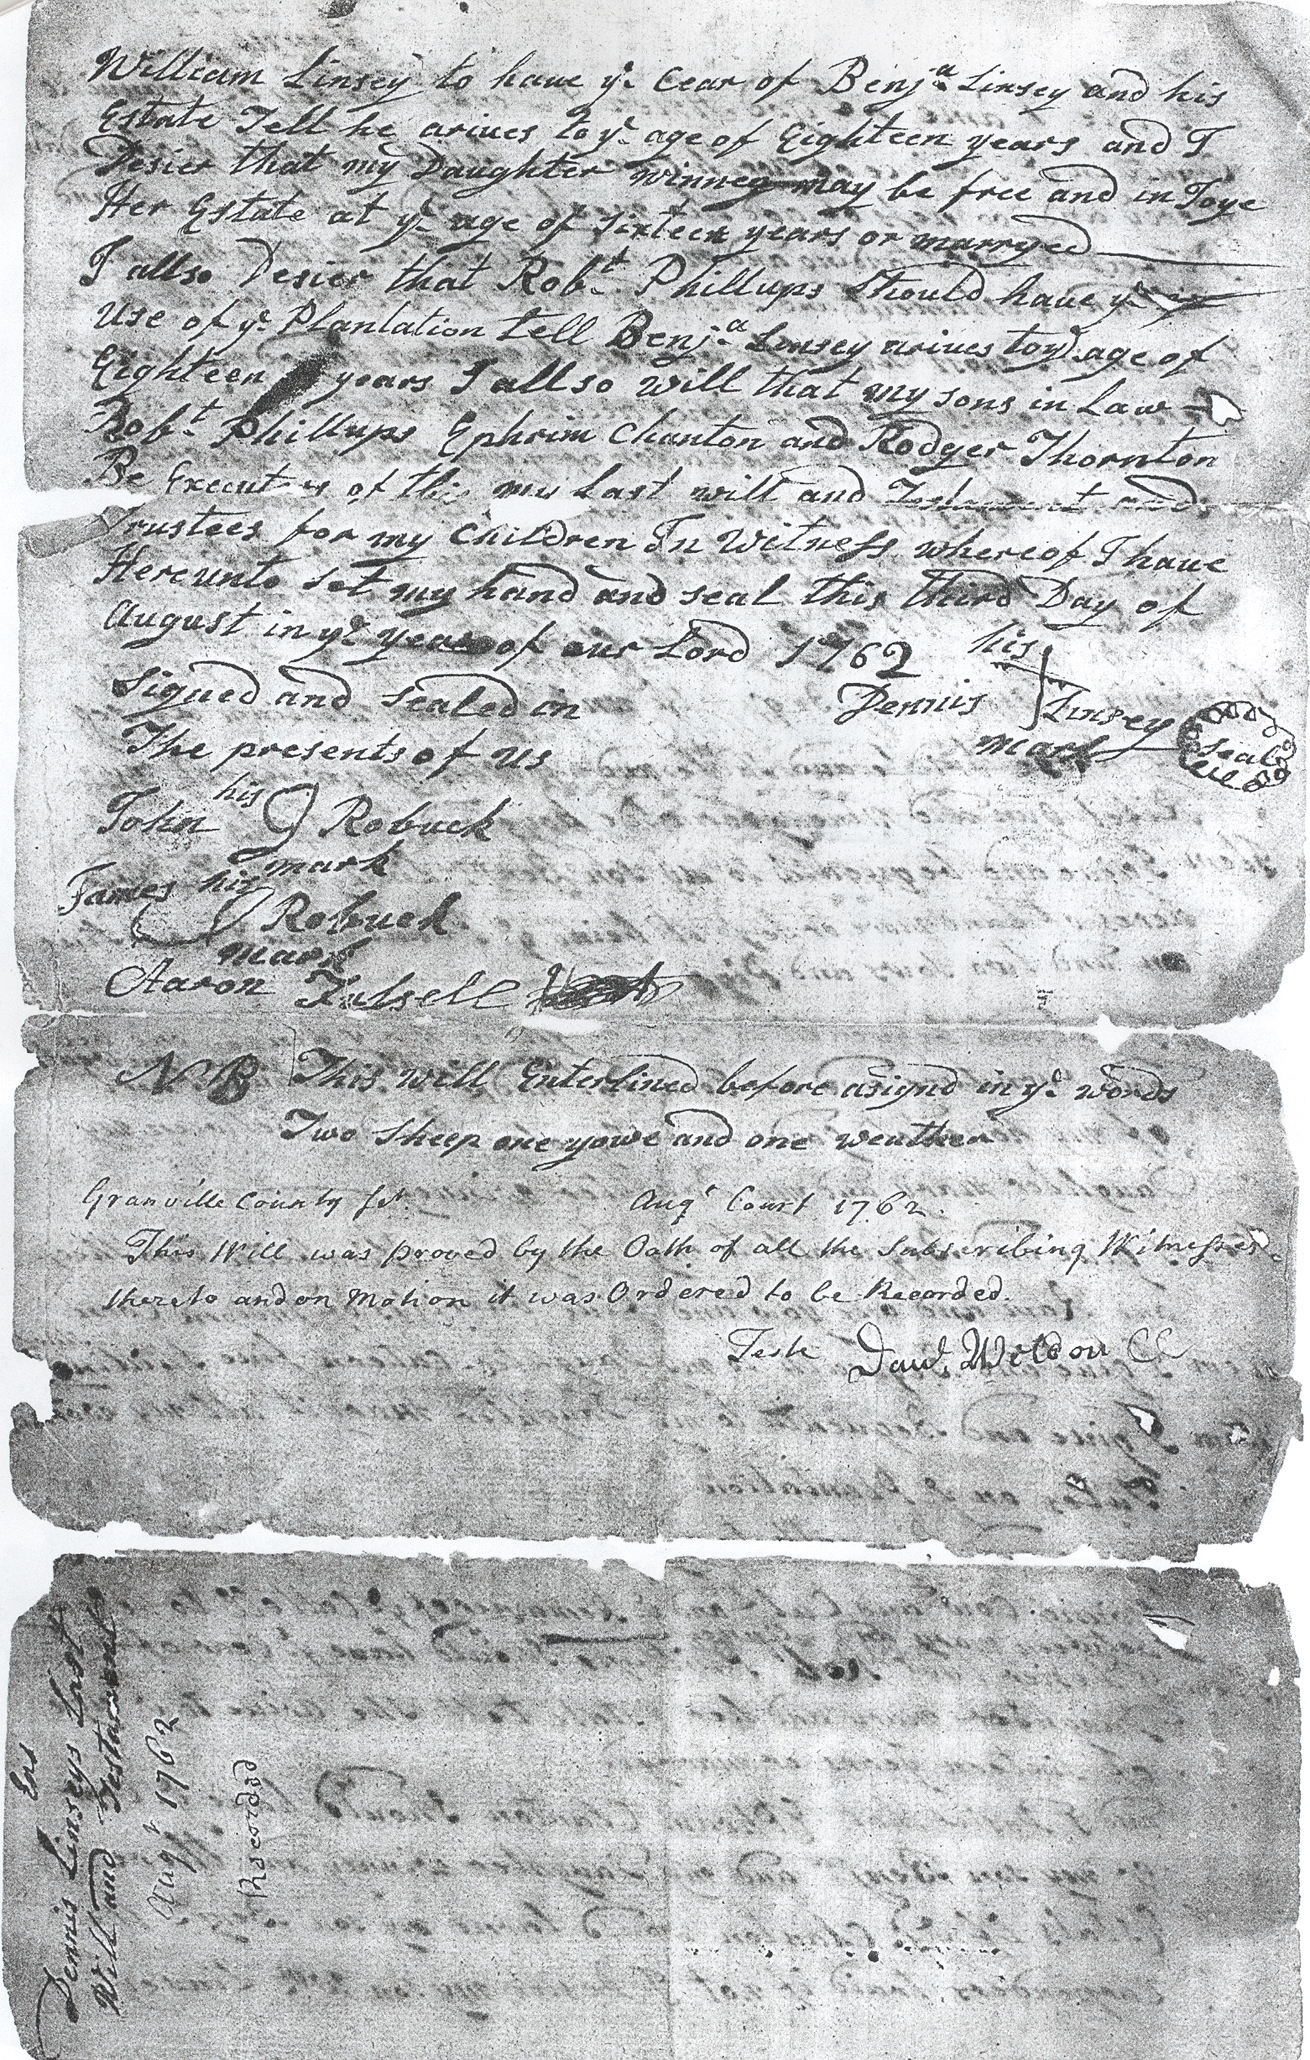 William Linsey to have ye Cear of Benja Linsey and his
Estate Tell he arives to ye age of Eighteen years and I
Desier that my Daughter Winney may be free and in Joye
Her Estate at ye age of Sixteen years or marryed
I allso Desier that Robt Phillups Should have ye
Use of ye Plantation tell Benja Linsey arives to ye age of
Eighteen years I allso will that my sons in Law
Robt Phillups Ephrim Clanton and Rodger Thornton
Be Executers of this my Last will and Testament and
Trustees for my Children In Witness whereof I have
Hereunto set my hand and seal this third Day of
August in ye year of our Lord 1762
his
Dennis Linsey
mark
Seal
Signed and sealed in
The presents of us
his
John Robuck
mark
James his
Robuck
mark
Aaron Fussell
NB This will Enterlined before asignd in ye words
Two Sheep one yowe and one weather
Granville County Sst. Augt Court 1762.
This Will was proved by the Oath of all the Subscribing Witnesses
thereto and on Motion it was Ordered to be Recorded.
Teste Danl. Weldon CC
Dennis Linseys Last
Will and Testament
Augt 1762
Recorded